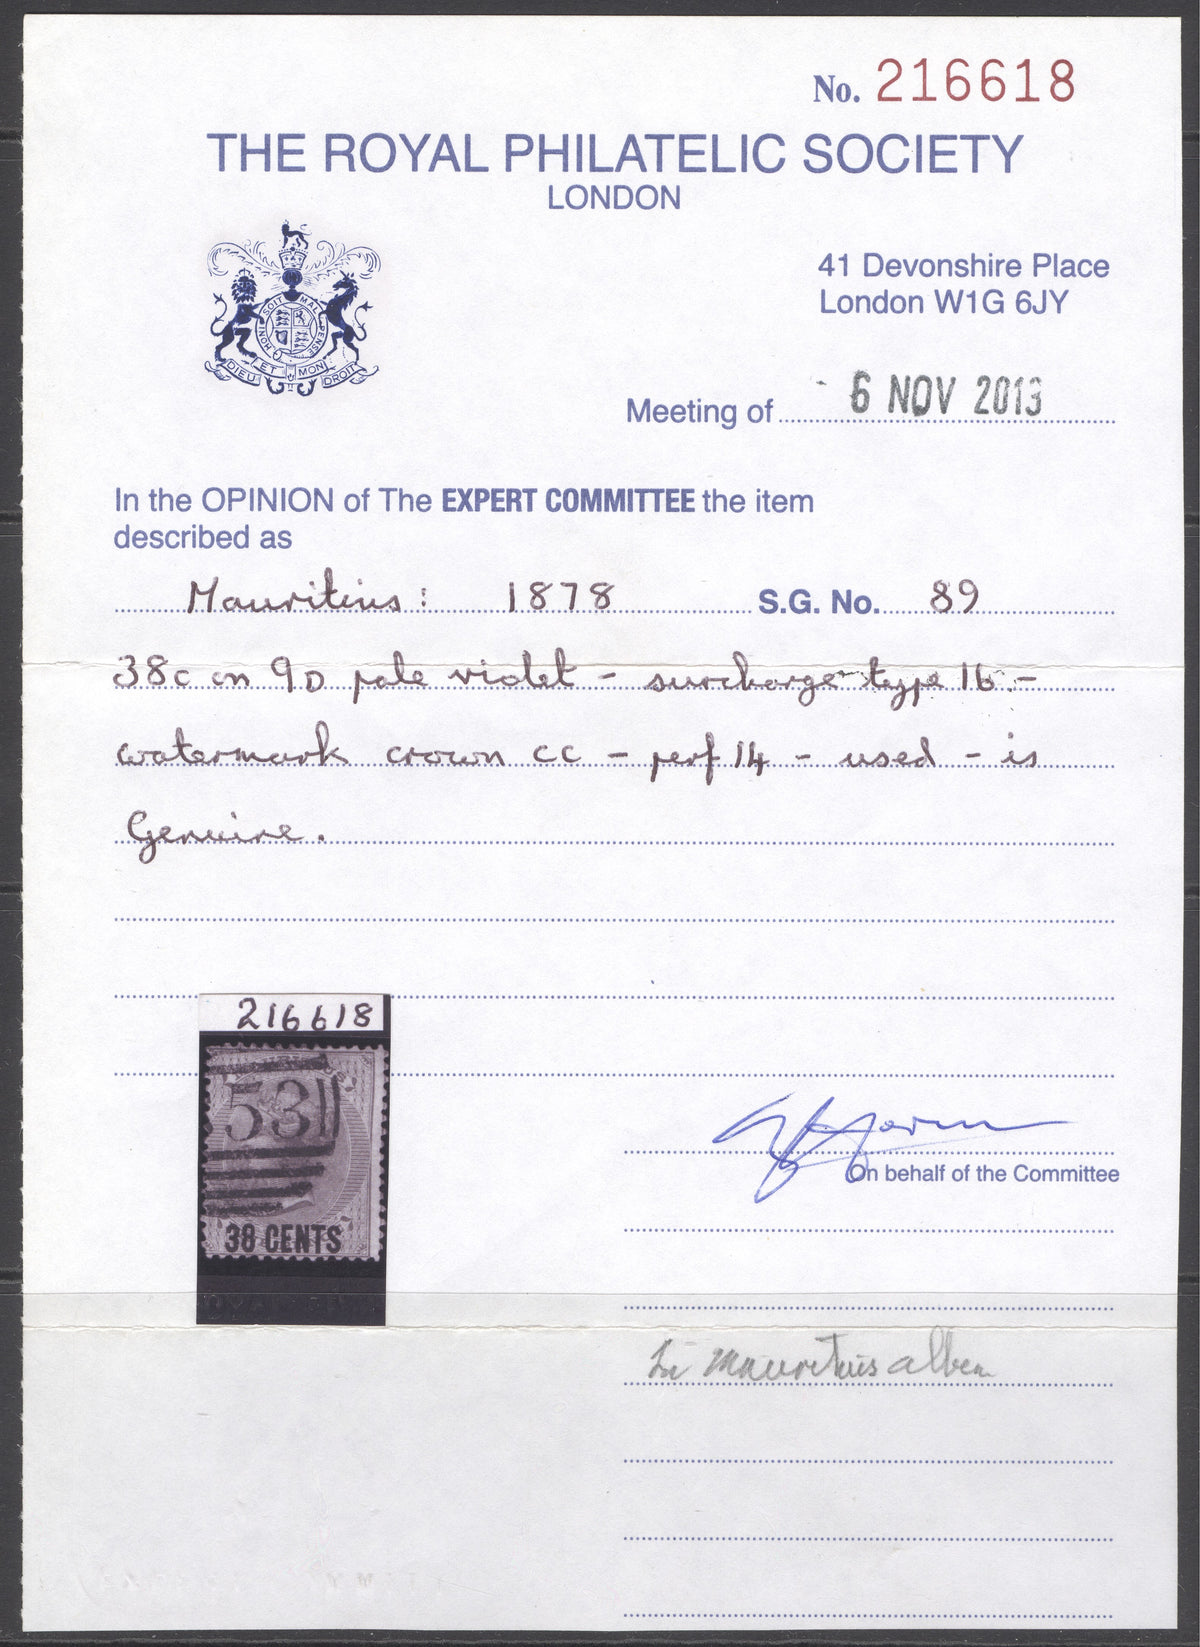 No. 216618
THE ROYAL PHILATELIC SOCIETY
LONDON
41 Devonshire Place
London W1G 6JY
HONI SOIT MAL PENSE
DIEU ET MON DROIT
Meeting of 6 NOV 2013
In the OPINION of The EXPERT COMMITTEE the item
described as
Mauritius: 1878 S.G. No. 89
38c on 9D pale violet - surcharge type 16 -
watermark crown CC - perf 14 - used - is
Genuine.
216618
53
38 CENTS
On behalf of the Committee
In Mauritius album